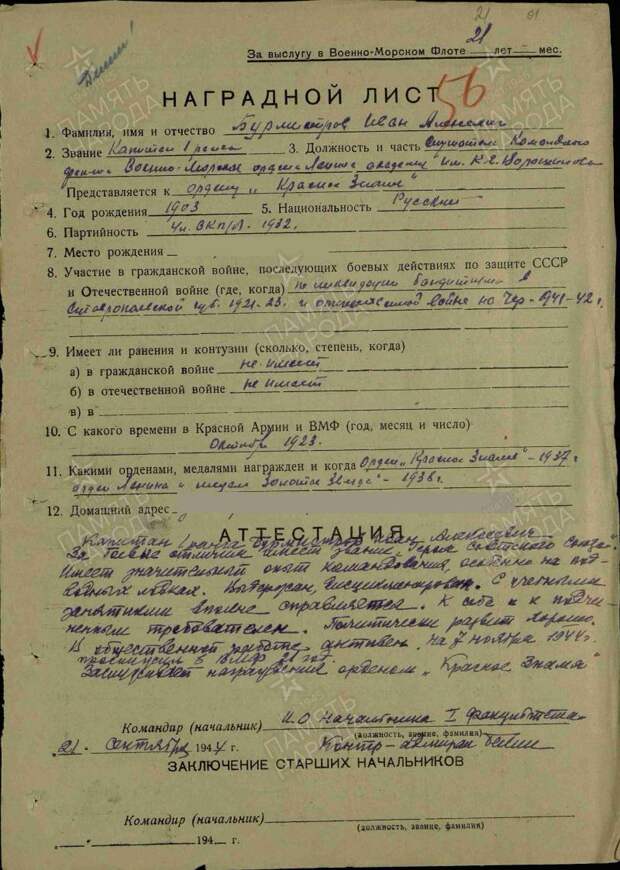 21
За выслугу в Военно-Морском Флоте 21 лет мес.
НАГРАДНОЙ ЛИСТ 56
1. Фамилия, имя и отчество Бурмистров Иван Алексеевич
2. Звание Капитан 1 ранга 3. Должность и часть Слушатель Командного
Военно-Морской ордена Ленина академии им. К.Е. Ворошилова
Представляется к ордену „Красное Знамя"
4. Год рождения 1903 5. Национальность Русский
6. Партийность Чл. ВКП/б. 1932.
7. Место рождения
8. Участие в гражданской войне, последующих боевых действиях по защите СССР
и Отечественной войне (где, когда) по ликвидации бандитизма в
Ставропольской губ. 1921-23. и отечественной войне на Чер- 1941-42 г.
9. Имеет ли ранения и контузии (сколько, степень, когда)
а) в гражданской войне не имеет
б) в отечественной войне не имеет
в) в
10. С какого времени в Красной Армии и ВМФ (год, месяц и число)
Октябрь 1923.
11. Какими орденами, медалями награжден и когда Орден „Красное Знамя" - 1937г
орден Ленина и медаль Золотая Звезда - 1938 г.
12. Домашний адрес
АТТЕСТАЦИЯ
Капитан 1 ранга Бурмистров Иван Алексеевич
За боевые отличия имеет звание „Героя Советского Союза".
Имеет значительный опыт командования, особенно на под-
водных лодках. Выдержан, дисциплинирован. С учебными
занятиями вполне справляется. К себе и к подчи-
ненным требователен. Политически развит хорошо.
В общественной работе активен. на 7 ноября 1944г.
прослужил в ВМФ 21 год.
Заслуживает награждения орденом „Красное Знамя"
Командир (начальник) И.О. Начальника I факультета
(должность, звание, фамилия)
21. Сентября 1944 г. Контр-адмирал
ЗАКЛЮЧЕНИЕ СТАРШИХ НАЧАЛЬНИКОВ
Командир (начальник)
(должность, звание, фамилия)
194 г.
ПАМЯТЬ НАРОДА